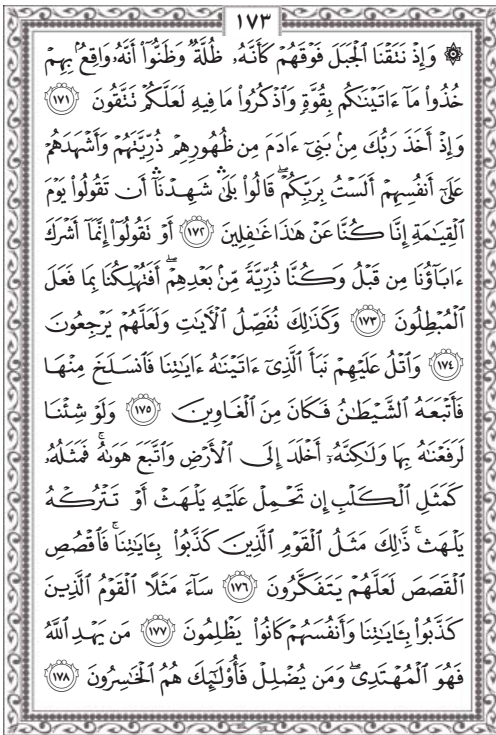 ١٧٣
۞ وَإِذْ نَتَقْنَا ٱلْجَبَلَ فَوْقَهُمْ كَأَنَّهُۥ ظُلَّةٌ وَظَنُّوٓا۟ أَنَّهُۥ وَاقِعٌۢ بِهِمْ
خُذُوا۟ مَآ ءَاتَيْنَٰكُم بِقُوَّةٍ وَٱذْكُرُوا۟ مَا فِيهِ لَعَلَّكُمْ تَتَّقُونَ ١٧١
وَإِذْ أَخَذَ رَبُّكَ مِنۢ بَنِىٓ ءَادَمَ مِن ظُهُورِهِمْ ذُرِّيَّتَهُمْ وَأَشْهَدَهُمْ
عَلَىٰٓ أَنفُسِهِمْ أَلَسْتُ بِرَبِّكُمْ ۖ قَالُوا۟ بَلَىٰ ۛ شَهِدْنَآ ۛ أَن تَقُولُوا۟ يَوْمَ
ٱلْقِيَٰمَةِ إِنَّا كُنَّا عَنْ هَٰذَا غَٰفِلِينَ ١٧٢ أَوْ تَقُولُوٓا۟ إِنَّمَآ أَشْرَكَ
ءَابَآؤُنَا مِن قَبْلُ وَكُنَّا ذُرِّيَّةً مِّنۢ بَعْدِهِمْ ۖ أَفَتُهْلِكُنَا بِمَا فَعَلَ
ٱلْمُبْطِلُونَ ١٧٣ وَكَذَٰلِكَ نُفَصِّلُ ٱلْـَٔايَٰتِ وَلَعَلَّهُمْ يَرْجِعُونَ
١٧٤ وَٱتْلُ عَلَيْهِمْ نَبَأَ ٱلَّذِىٓ ءَاتَيْنَٰهُ ءَايَٰتِنَا فَٱنسَلَخَ مِنْهَا
فَأَتْبَعَهُ ٱلشَّيْطَٰنُ فَكَانَ مِنَ ٱلْغَاوِينَ ١٧٥ وَلَوْ شِئْنَا
لَرَفَعْنَٰهُ بِهَا وَلَٰكِنَّهُۥٓ أَخْلَدَ إِلَى ٱلْأَرْضِ وَٱتَّبَعَ هَوَىٰهُ ۚ فَمَثَلُهُۥ
كَمَثَلِ ٱلْكَلْبِ إِن تَحْمِلْ عَلَيْهِ يَلْهَثْ أَوْ تَتْرُكْهُ
يَلْهَث ۚ ذَّٰلِكَ مَثَلُ ٱلْقَوْمِ ٱلَّذِينَ كَذَّبُوا۟ بِـَٔايَٰتِنَا ۚ فَٱقْصُصِ
ٱلْقَصَصَ لَعَلَّهُمْ يَتَفَكَّرُونَ ١٧٦ سَآءَ مَثَلًا ٱلْقَوْمُ ٱلَّذِينَ
كَذَّبُوا۟ بِـَٔايَٰتِنَا وَأَنفُسَهُمْ كَانُوا۟ يَظْلِمُونَ ١٧٧ مَن يَهْدِ ٱللَّهُ
فَهُوَ ٱلْمُهْتَدِى ۖ وَمَن يُضْلِلْ فَأُو۟لَٰٓئِكَ هُمُ ٱلْخَٰسِرُونَ ١٧٨